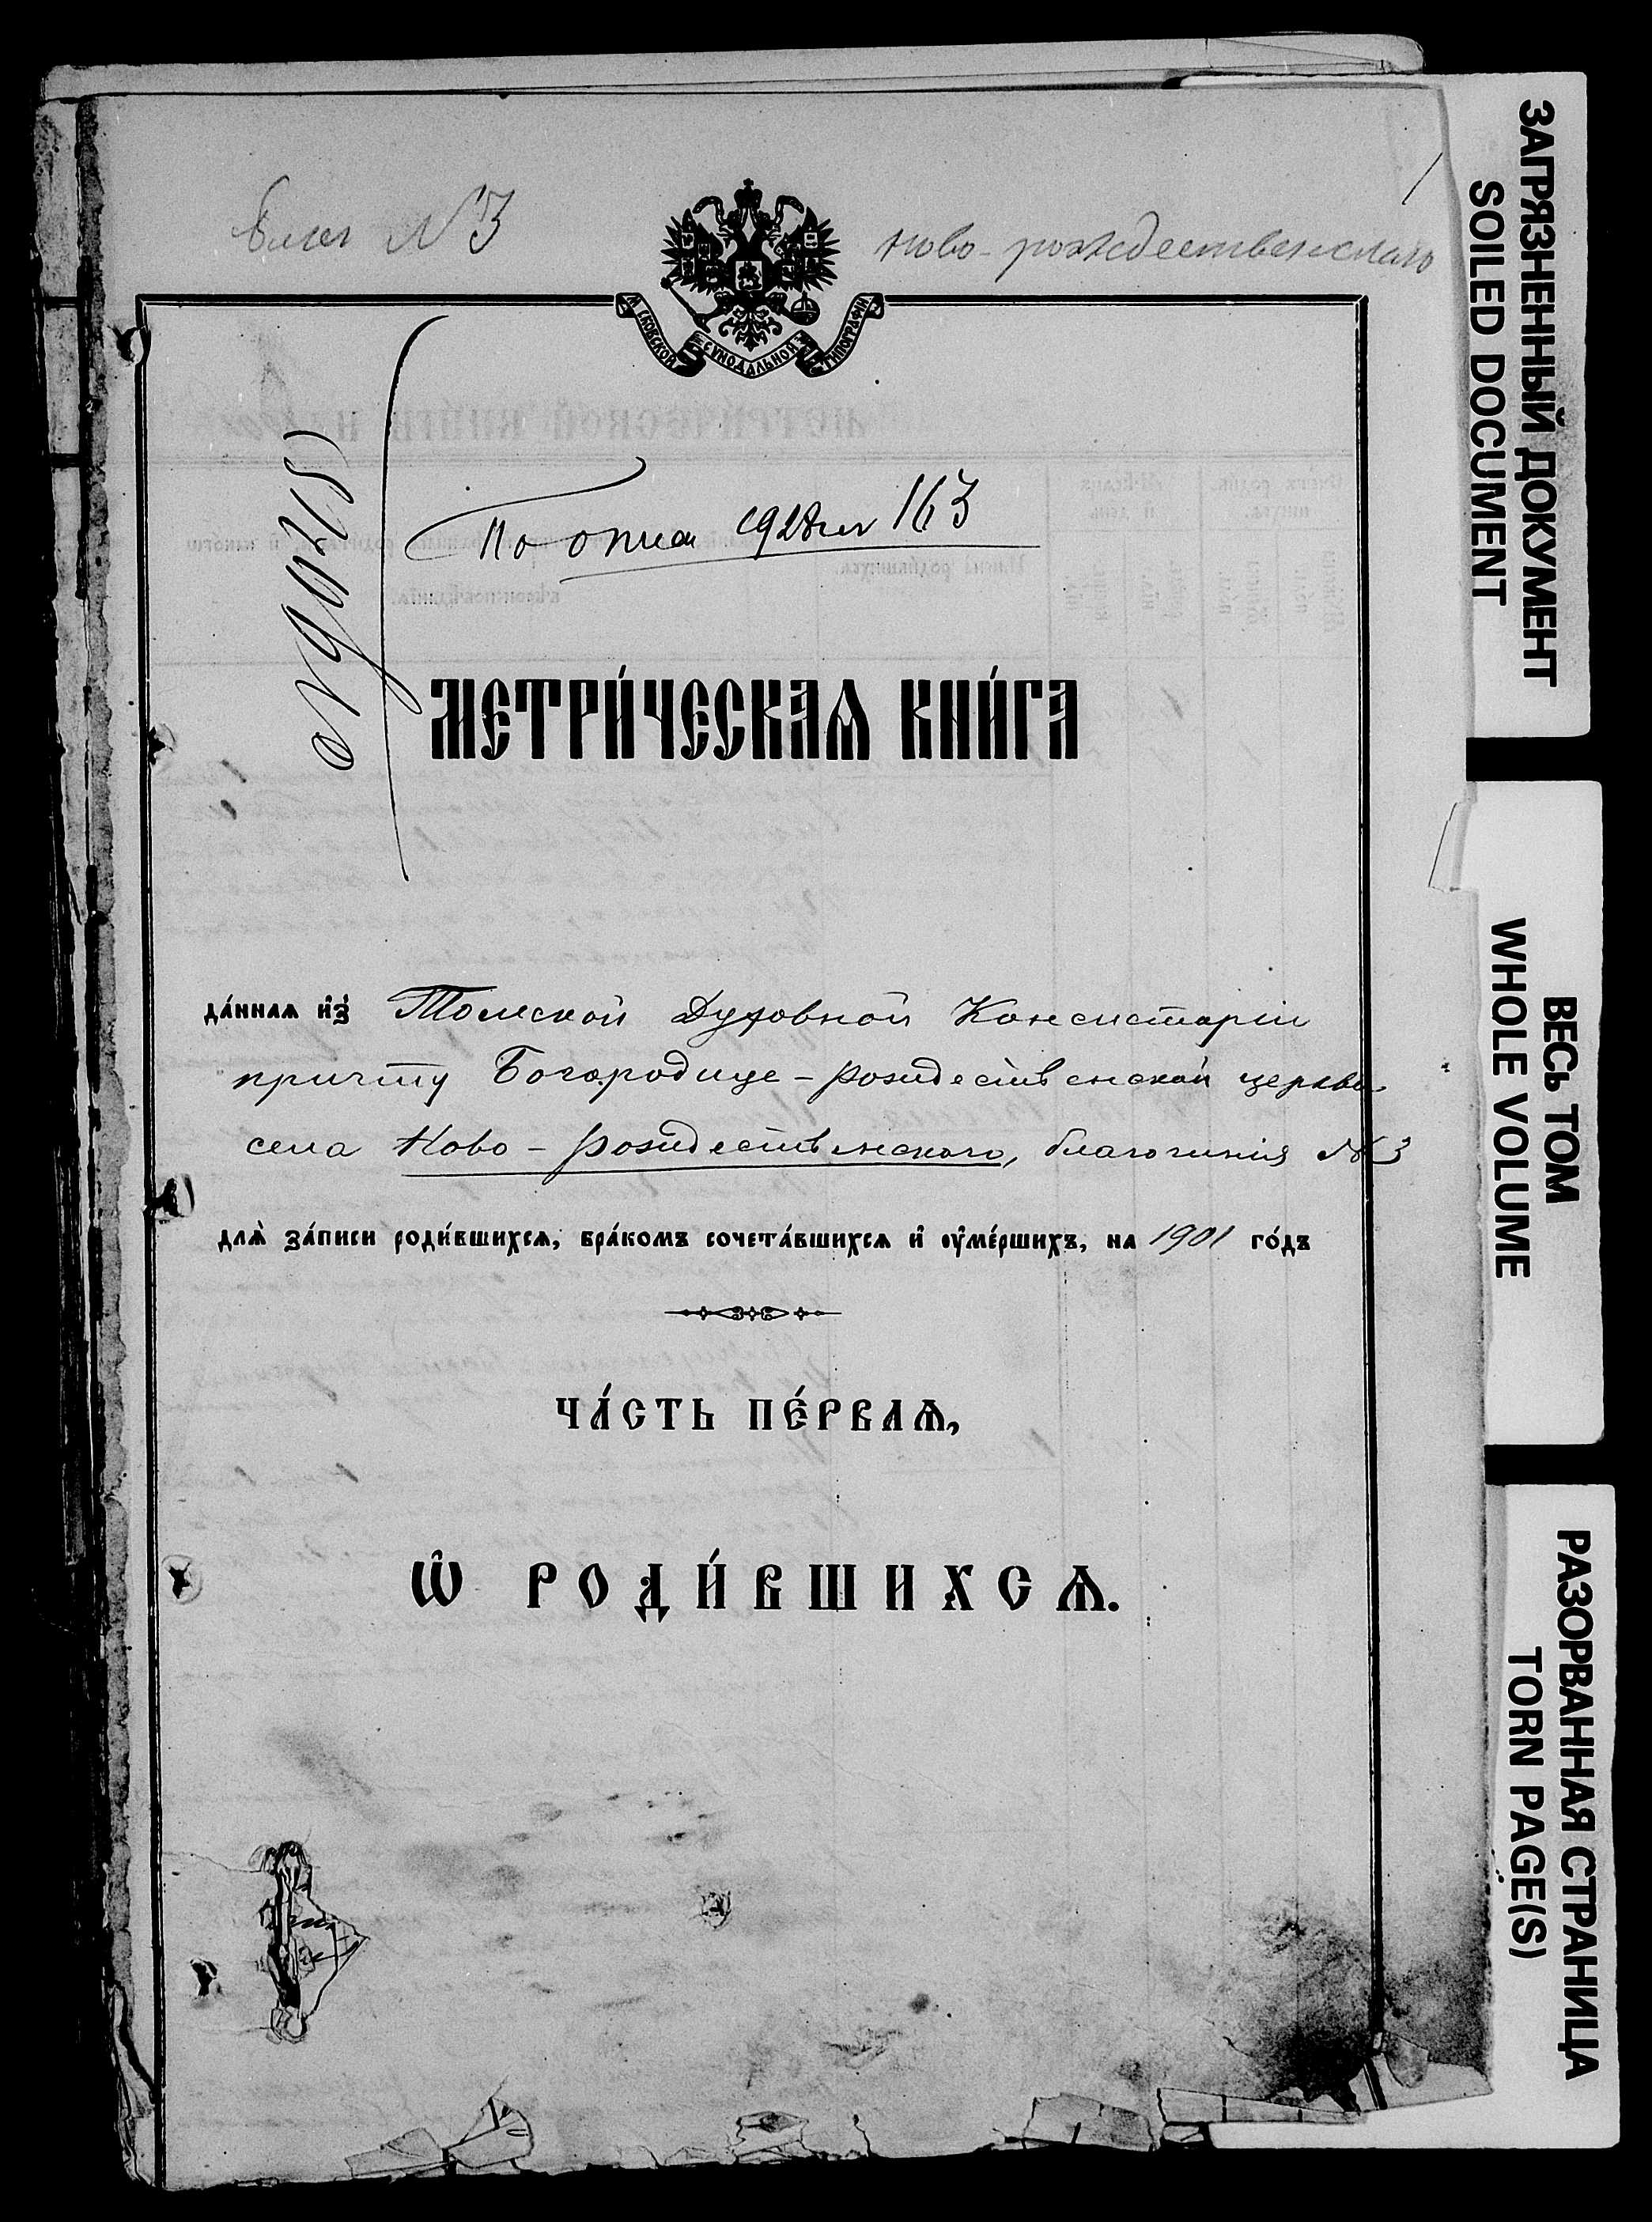 Благ № 3
Ново-рождественскаго
1
МОСКОВСКОЙ СѴНОДАЛЬНОЙ ТИПОГРАФІИ
По описи 1928 г № 163
МЕТРИ́ЧЕСКАѦ КНИ́ГА
да́ннаѧ и҆з̾ Томской Духовной Консисторіи
причту Богородице-рождественской церкви
села Ново-рождественского, благочинія № 3
длѧ̀ за́писи роди́вшихсѧ, бра́комъ сочета́вшихсѧ и҆ ᲂу҆ме́ршихъ, на 1901 го́дъ
ЧА́СТЬ ПЕ́РВАѦ,
Ѡ҆ РОДИ́ВШИХСѦ.
ЗАГРЯЗНЕННЫЙ ДОКУМЕНТ
SOILED DOCUMENT
ВЕСЬ ТОМ
WHOLE VOLUME
РАЗОРВАННАЯ СТРАНИЦА
TORN PAGE(S)